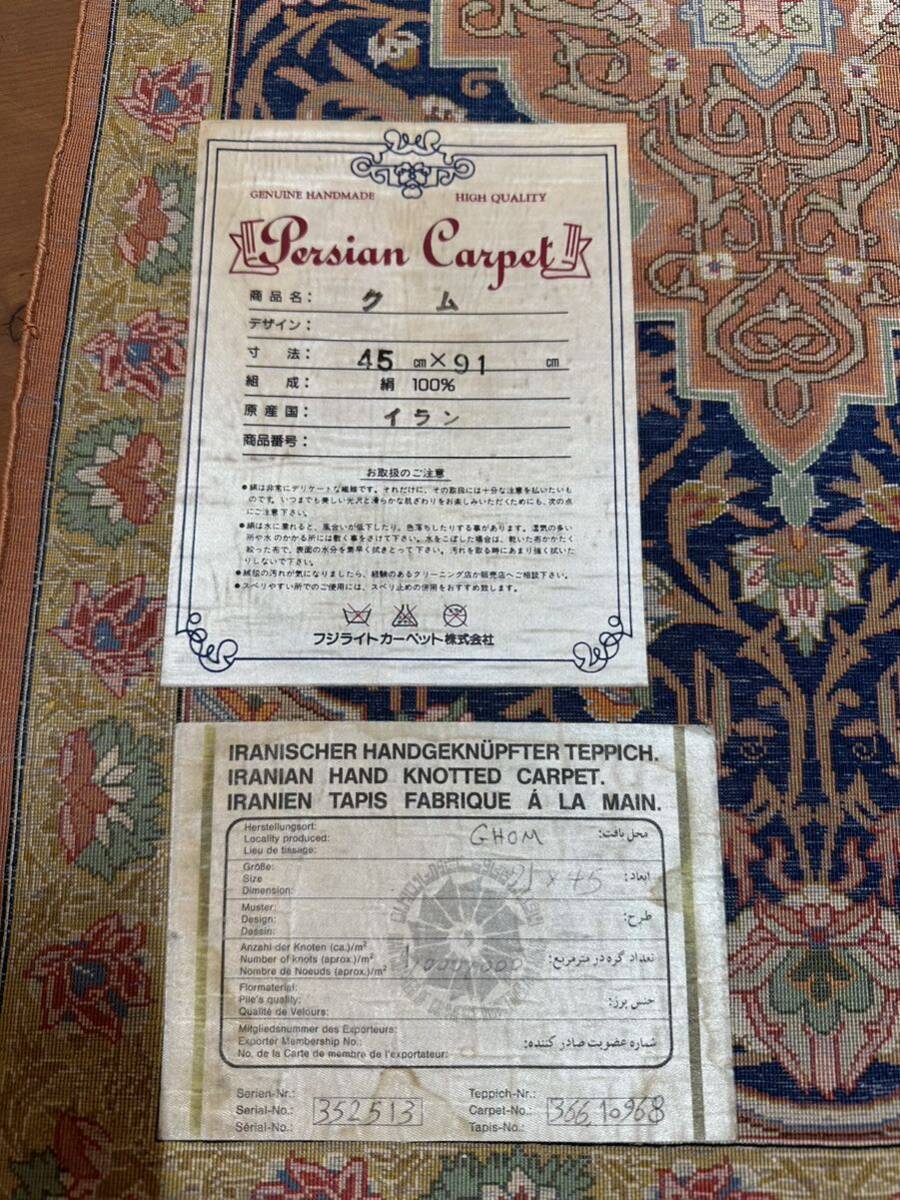 GENUINE HANDMADE HIGH QUALITY
Persian Carpet
商品名： クム
デザイン：
寸法： 45 cm×91 cm
組成： 絹 100%
原産国： イラン
商品番号：
お取扱のご注意
●絹は非常にデリケートな繊維です。それだけに、その取扱には十分な注意を払いたいも
のです。いつまでも美しい光沢と滑らかな肌ざわりをお楽しみいただくためにも、次の点
にご注意下さい。
●絹は水に濡れると、風合いが低下したり、色落ちしたりする事があります。湿気の多い
所や水のかかる所には敷く事をさけて下さい。水をこぼした場合は、乾いた布かかたく
絞った布で、表面の水分を素早く拭きとって下さい。汚れを取る時にあまり強く拭いた
りしないで下さい。
●絨毯の汚れが気になりましたら、経験のあるクリーニング店か販売店へご相談下さい。
●スベリやすい所でのご使用には、スベリ止めの併用をおすすめ致します。
フジライトカーペット株式会社
IRANISCHER HANDGEKNÜPFTER TEPPICH.
IRANIAN HAND KNOTTED CARPET.
IRANIEN TAPIS FABRIQUE Á LA MAIN.
Herstellungsort:
Locality produced: GHOM محل بافت:
Lieu de tissage:
Größe:
Size × 45 ابعاد:
Dimension:
Muster:
Design: طرح:
Dessin:
Anzahl der Knoten (ca.)/m²
Number of knots (aprox.)/m² تعداد گره در مترمربع:
Nombre de Noeuds (aprox.)/m²
Flormaterial:
Pile's quality: جنس پرز:
Qualité de Velours:
Mitgliedsnummer des Exporteurs:
Exporter Membership No.: شماره عضویت صادر کننده:
No. de la Carte de membre de l'exportateur:
Serien-Nr.: Teppich-Nr.:
Serial-No.: 352513 Carpet-No.: 366,10968
Sérial-No.: Tapis-No.: